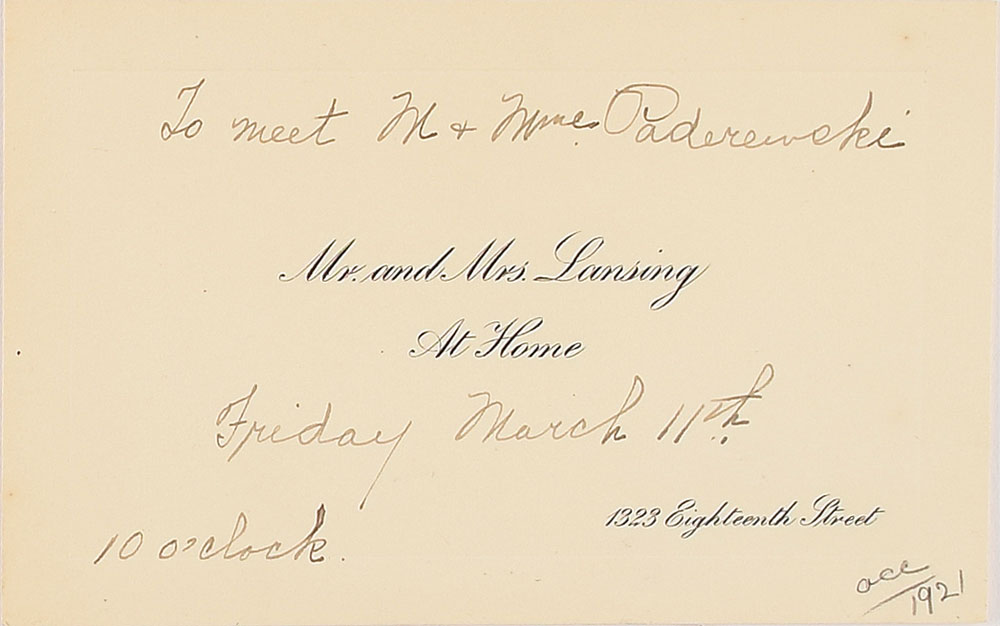 To meet M & Mme. Paderewski
Mr. and Mrs. Lansing
At Home
Friday March 11th.
1323 Eighteenth Street
10 o'clock.
acc
1921